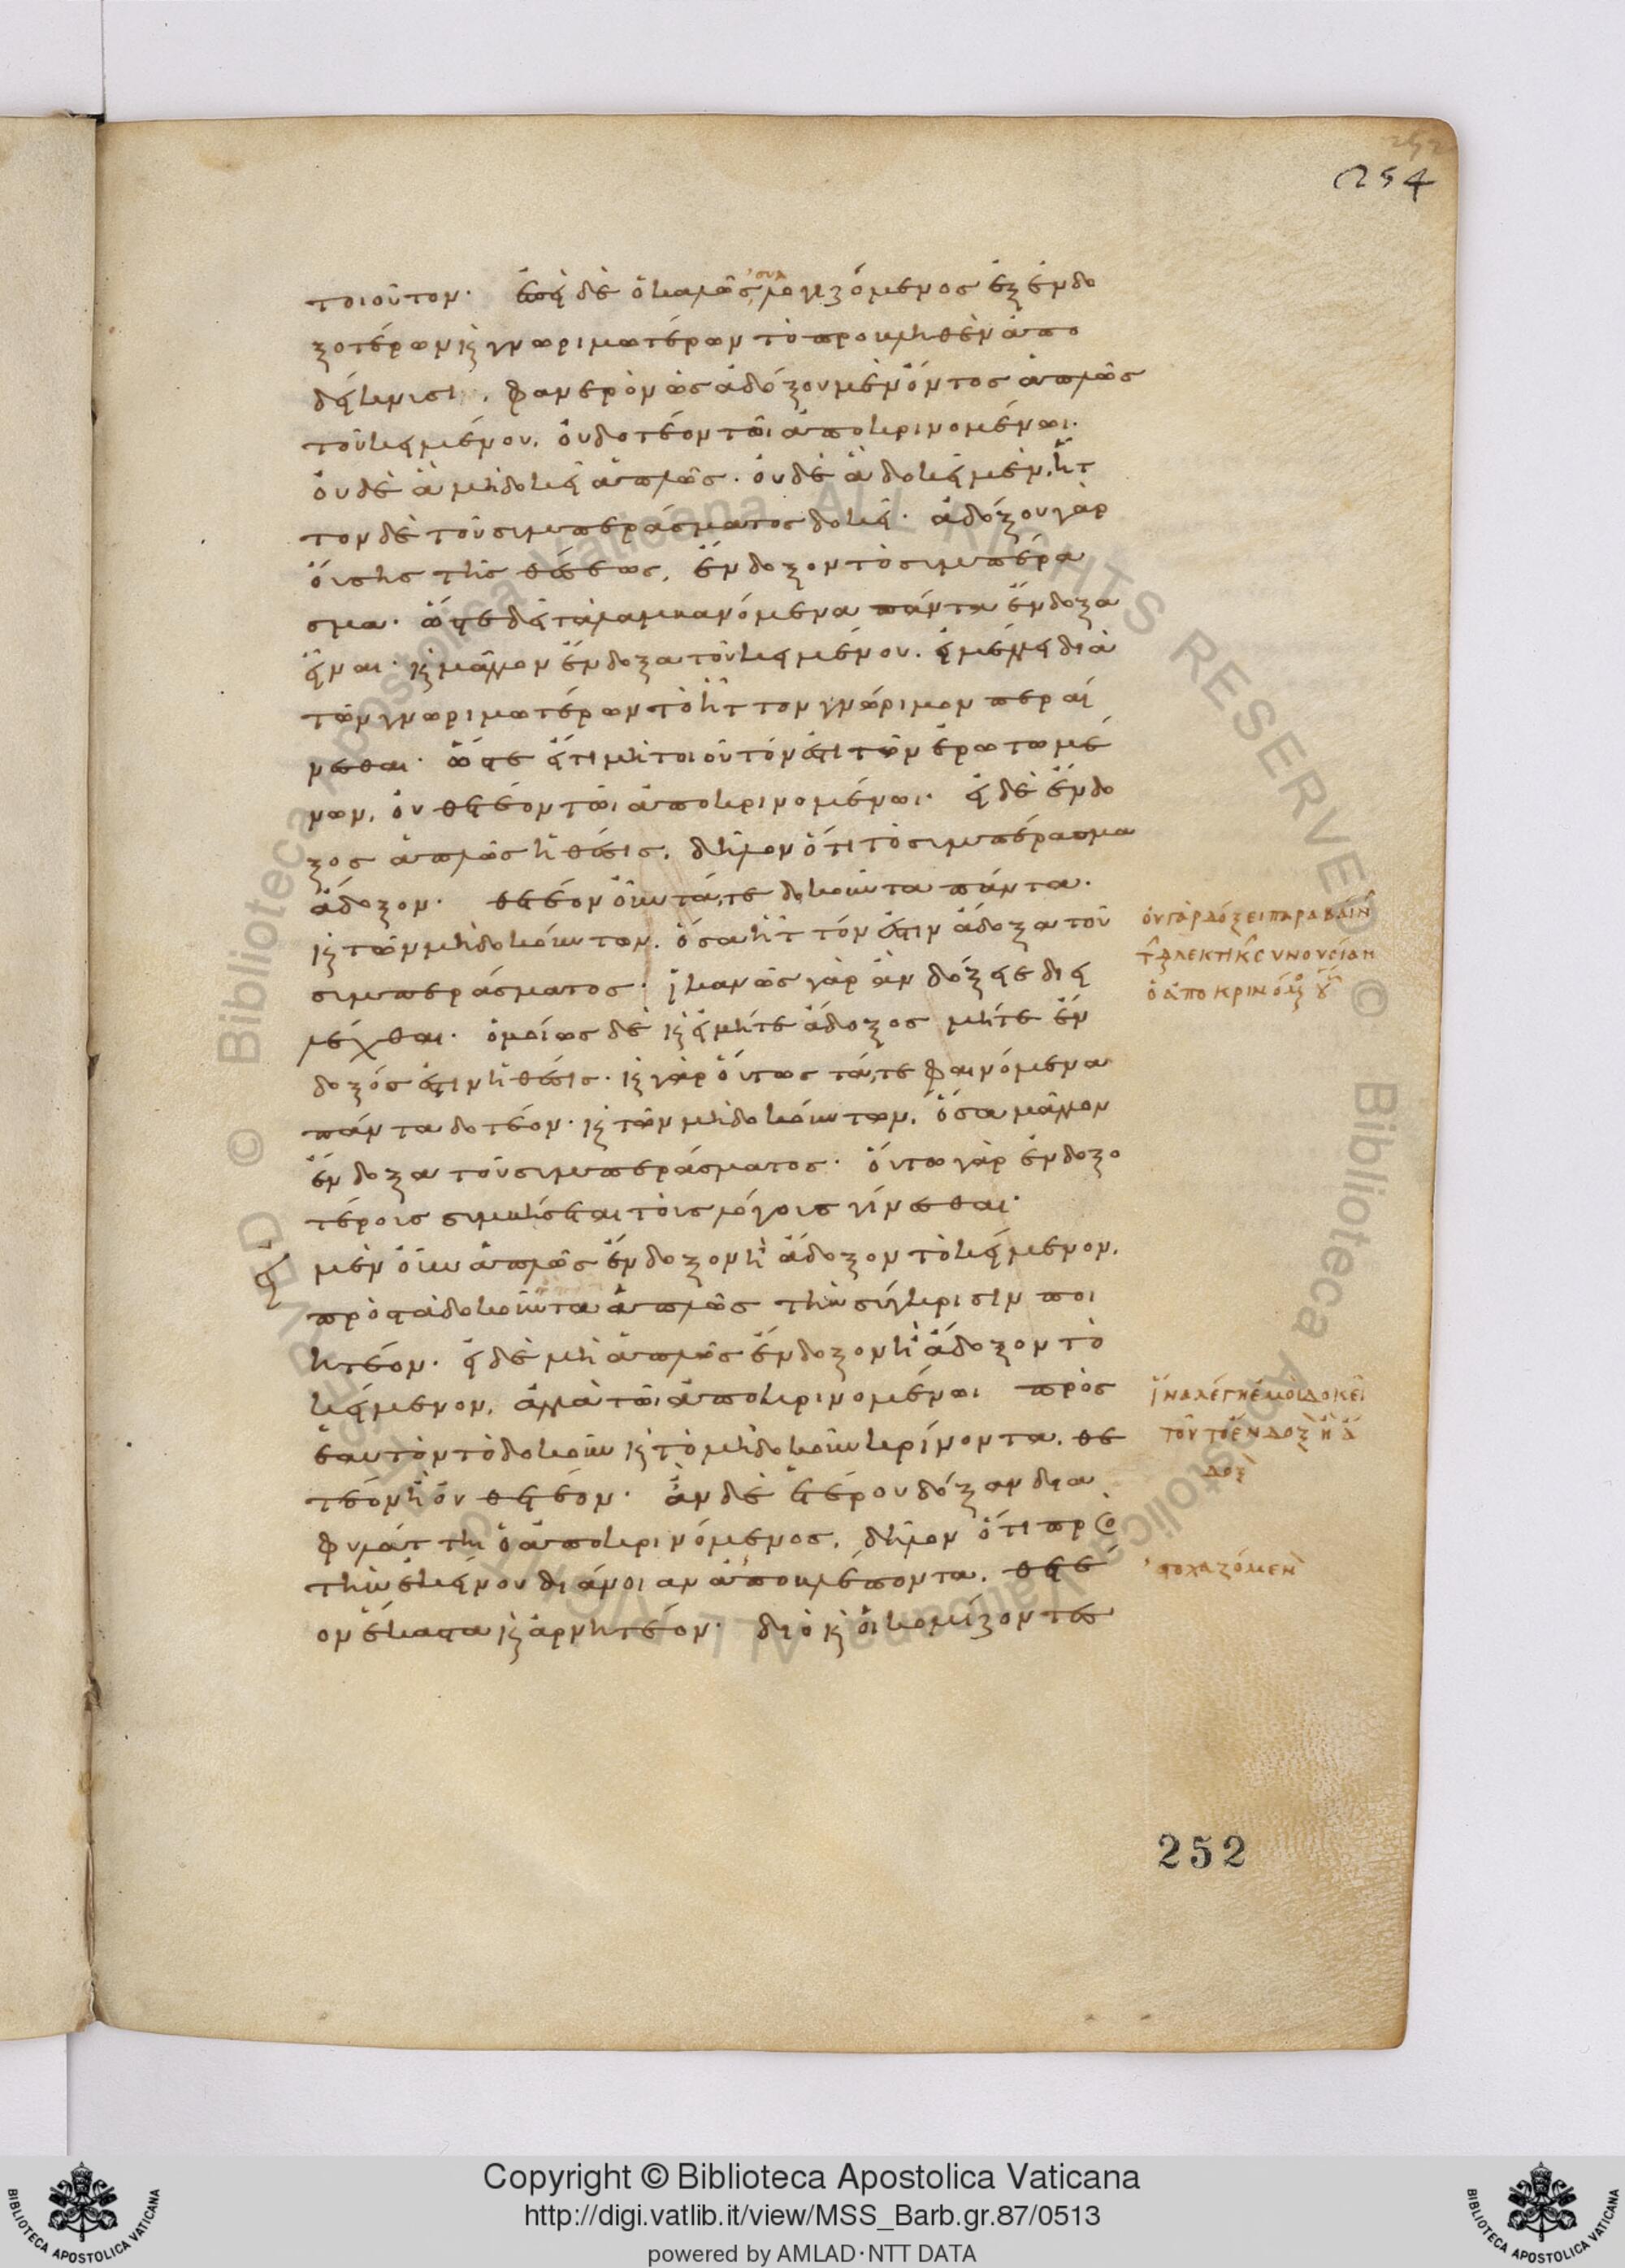 254
τοιοῦτον. ἐπεὶ δὲ ὁ καλῶς συλλογιζόμενος ἐξ ἐνδο
ξοτέρων καὶ γνωριμωτέρων τὸ προβληθὲν ἀπο
δείκνυσι, φανερὸν ὡς ἀδόξου μὲν ὄντος ἁπλῶς
τοῦ κειμένου, οὐ δοτέον τῶι ἀποκρινομένωι.
οὐδὲ ἃ μὴ δοκεῖ ἁπλῶς. οὐδὲ ἃ δοκεῖ μὲν, ἧτ
τον δὲ τοῦ συμπεράσματος δοκεῖ. ἀδόξου γὰρ
οὔσης τῆς θέσεως, ἔνδοξον τὸ συμπέρα
σμα. ὥστε δεῖ τὰ λαμβανόμενα πάντα ἔνδοξα
εἶναι. καὶ μᾶλλον ἔνδοξα τοῦ κειμένου. εἰ μέλλει διὰ
τῶν γνωριμωτέρων τὸ ἧττον γνώριμον περαί
νεσθαι. ὥστε εἴ τι μὴ τοιοῦτόν ἐστι τῶν ἐρωτωμέ
νων, οὐ θετέον τῶι ἀποκρινομένωι. εἰ δὲ ἔνδο
ξος ἁπλῶς ἡ θέσις, δῆλον ὅτι τὸ συμπέρασμα
ἄδοξον. θετέον οὖν τά, τε δοκοῦντα πάντα.
καὶ τῶν μὴ δοκούντων, ὅσα ἧττόν ἐστιν ἄδοξα τοῦ
συμπεράσματος. ἱκανῶς γὰρ ἂν δόξειε διει
λέχθαι. ὁμοίως δὲ καὶ εἰ μήτε ἄδοξος μήτε ἔν
δοξός ἐστιν ἡ θέσις. καὶ γὰρ οὕτως τά, τε φαινόμενα
πάντα δοτέον. καὶ τῶν μὴ δοκούντων, ὅσα μᾶλλον
ἔνδοξα τοῦ συμπεράσματος. οὕτω γὰρ ἐνδοξο
τέροις συμβήσεται τοὺς λόγους γίνεσθαι.
εἰ μὲν οὖν ἁπλῶς ἔνδοξον ἢ ἄδοξον τὸ κείμενον,
πρὸς τὰ δοκοῦντα ἁπλῶς τὴν σύγκρισιν ποι
ητέον. εἰ δὲ μὴ ἁπλῶς ἔνδοξον ἢ ἄδοξον τὸ
κείμενον, ἀλλὰ τῶι ἀποκρινομένωι πρὸς
ἑαυτὸν τὸ δοκοῦν καὶ τὸ μὴ δοκοῦν κρίνοντα, θε
τέον ἢ οὐ θετέον. ἂν δὲ ἑτέρου δόξαν δια
φυλάττη ὁ ἀποκρινόμενος, δῆλον ὅτι πρὸς
τὴν ἐκείνου διάνοιαν ἀποβλέποντα, θετέ
ον ἕκαστα καὶ ἀρνητέον. διὸ καὶ οἱ κομίζοντες
στοχαζόμεν
252
Copyright © Biblioteca Apostolica Vaticana
http://digi.vatlib.it/view/MSS_Barb.gr.87/0513
powered by AMLAD·NTT DATA